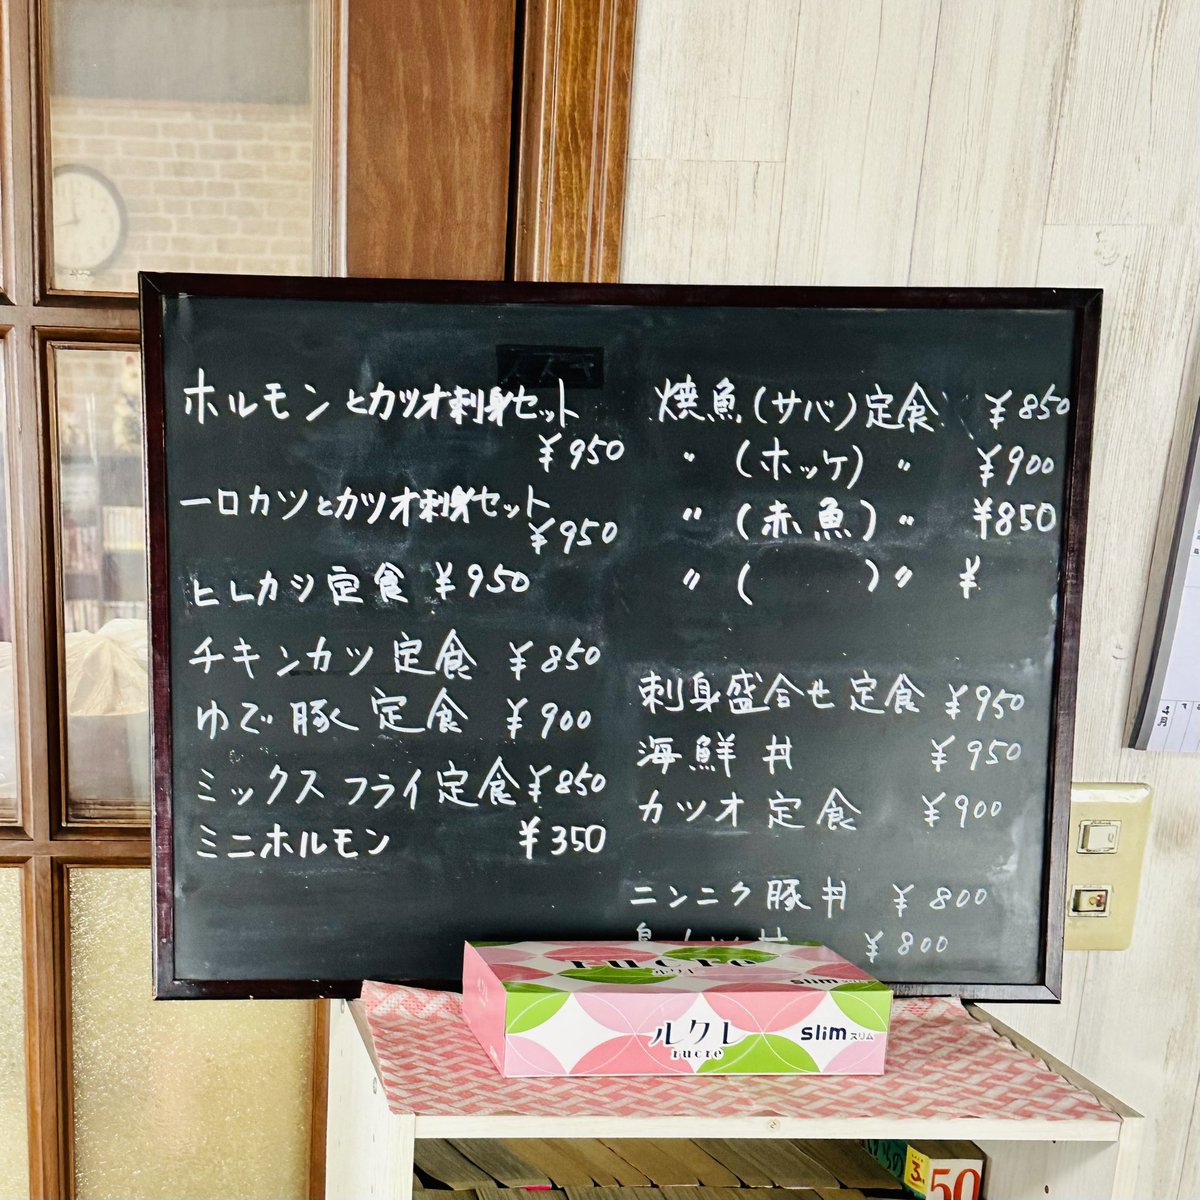 ホルモンとカツオ刺身セット
¥950
一口カツとカツオ刺身セット
¥950
ヒレカツ定食 ¥950
チキンカツ定食 ¥850
ゆで豚定食 ¥900
ミックスフライ定食 ¥850
ミニホルモン ¥350
焼魚(サバ)定食 ¥850
〃 (ホッケ) 〃 ¥900
〃 (赤魚) 〃 ¥850
〃 ( ) 〃 ¥
刺身盛合せ定食 ¥950
海鮮丼 ¥950
カツオ定食 ¥900
ニンニク豚丼 ¥800
¥800
rucre
ルクレ
slim
ルクレ
rucre
slim スリム
50